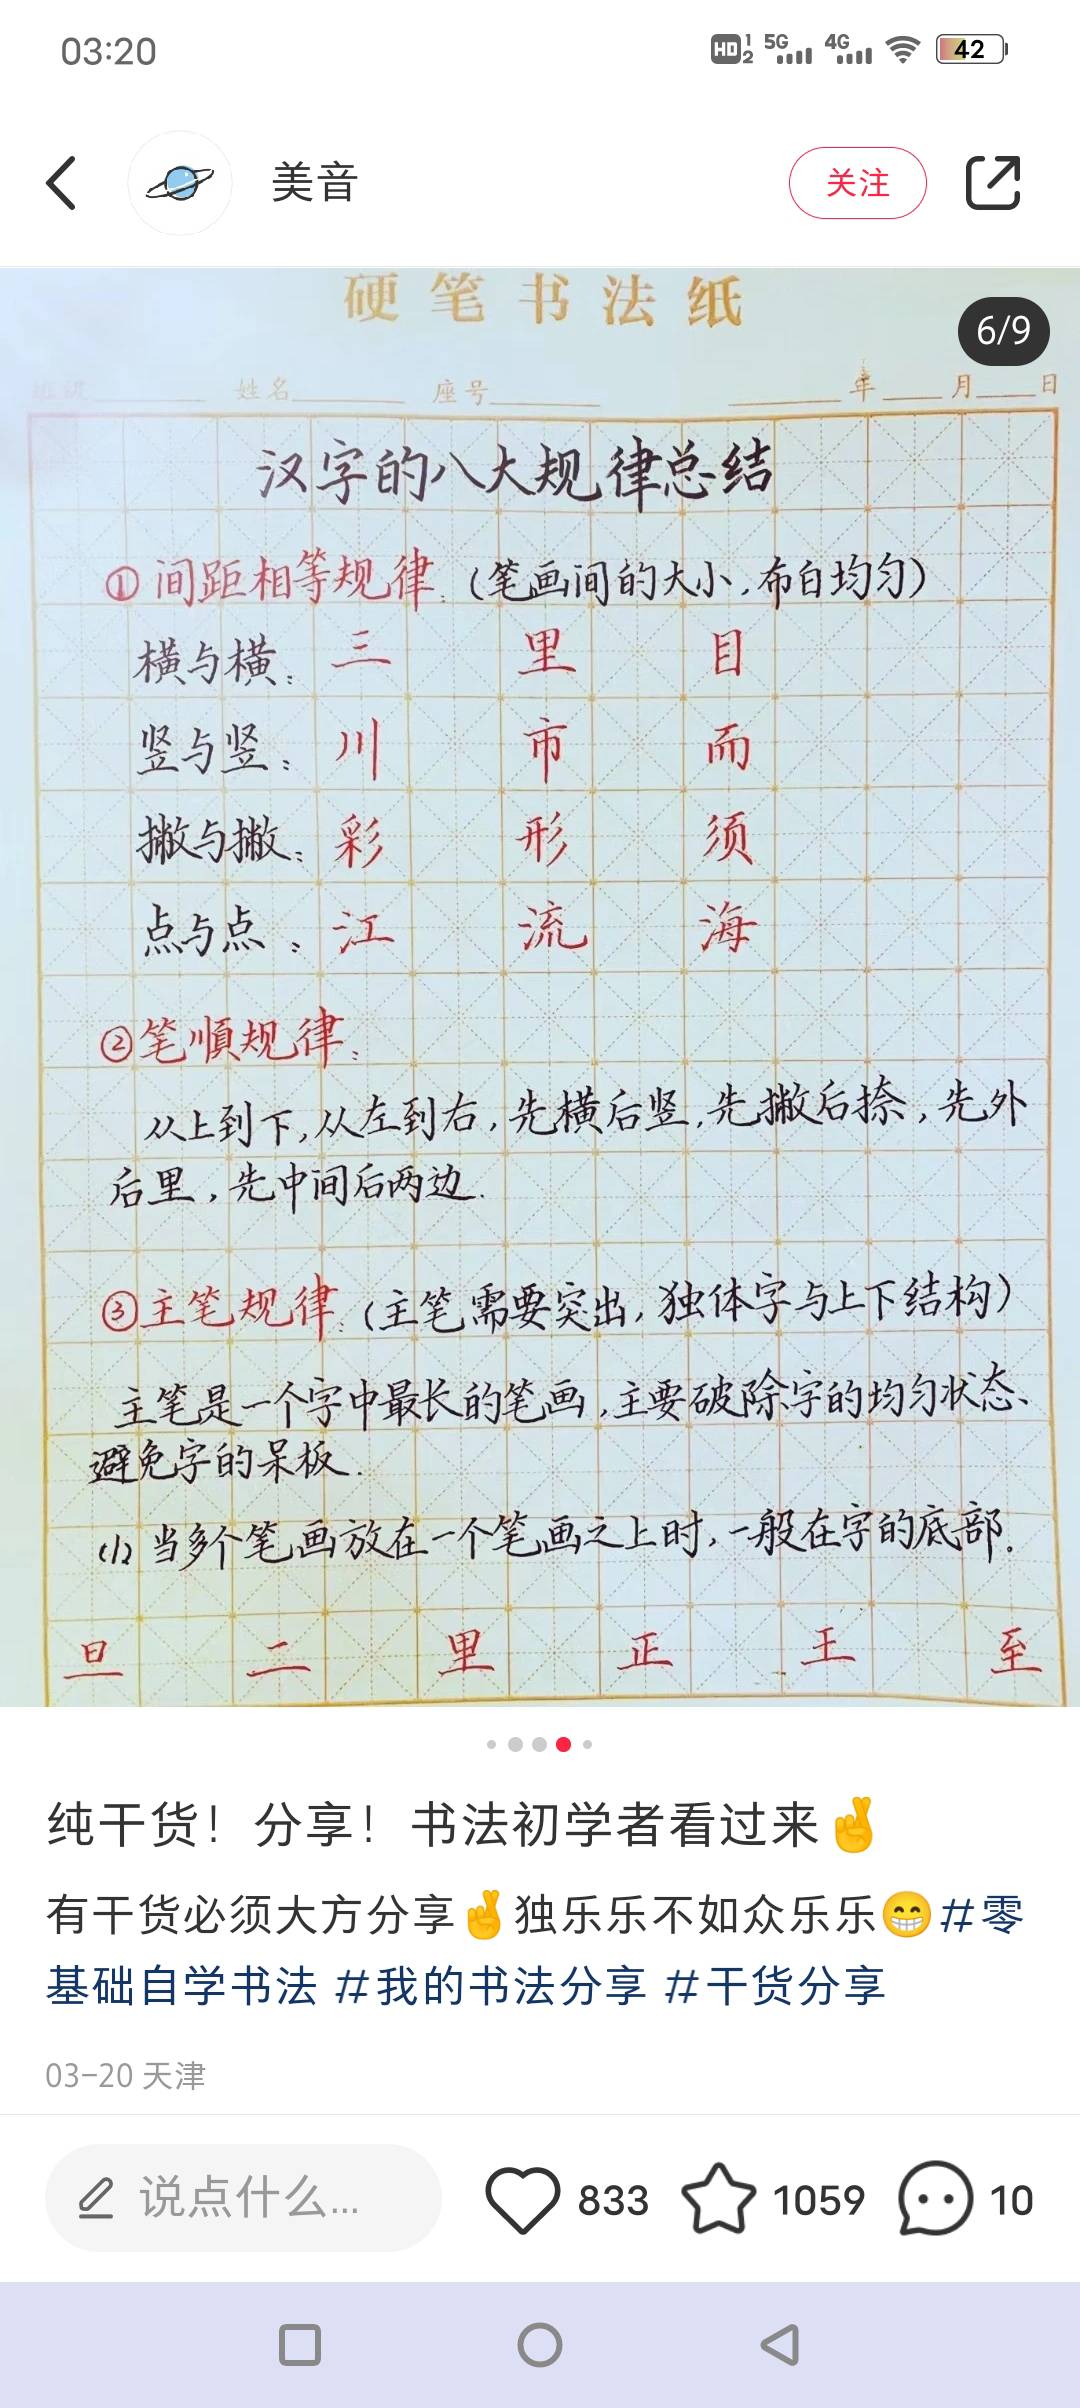 03:20
HD 1 2 5G 4G 42
美音
关注
硬笔书法纸
6/9
姓名 座号 年 月 日
汉字的八大规律总结
①间距相等规律:(笔画间的大小,布白均匀)
横与横: 三 里 目
竖与竖: 川 市 而
撇与撇: 彩 形 须
点与点: 江 流 海
②笔順规律:
从上到下,从左到右,先横后竖,先撇后捺,先外
后里,先中间后两边.
③主笔规律:(主笔需要突出,独体字与上下结构)
主笔是一个字中最长的笔画,主要破除字的均匀状态、
避免字的呆板.
(1)当多个笔画放在一个笔画之上时,一般在字的底部.
旦 二 里 正 王 至
纯干货!分享!书法初学者看过来🤞
有干货必须大方分享🤞独乐乐不如众乐乐😁#零
基础自学书法 #我的书法分享 #干货分享
03-20 天津
说点什么... 833 1059 10